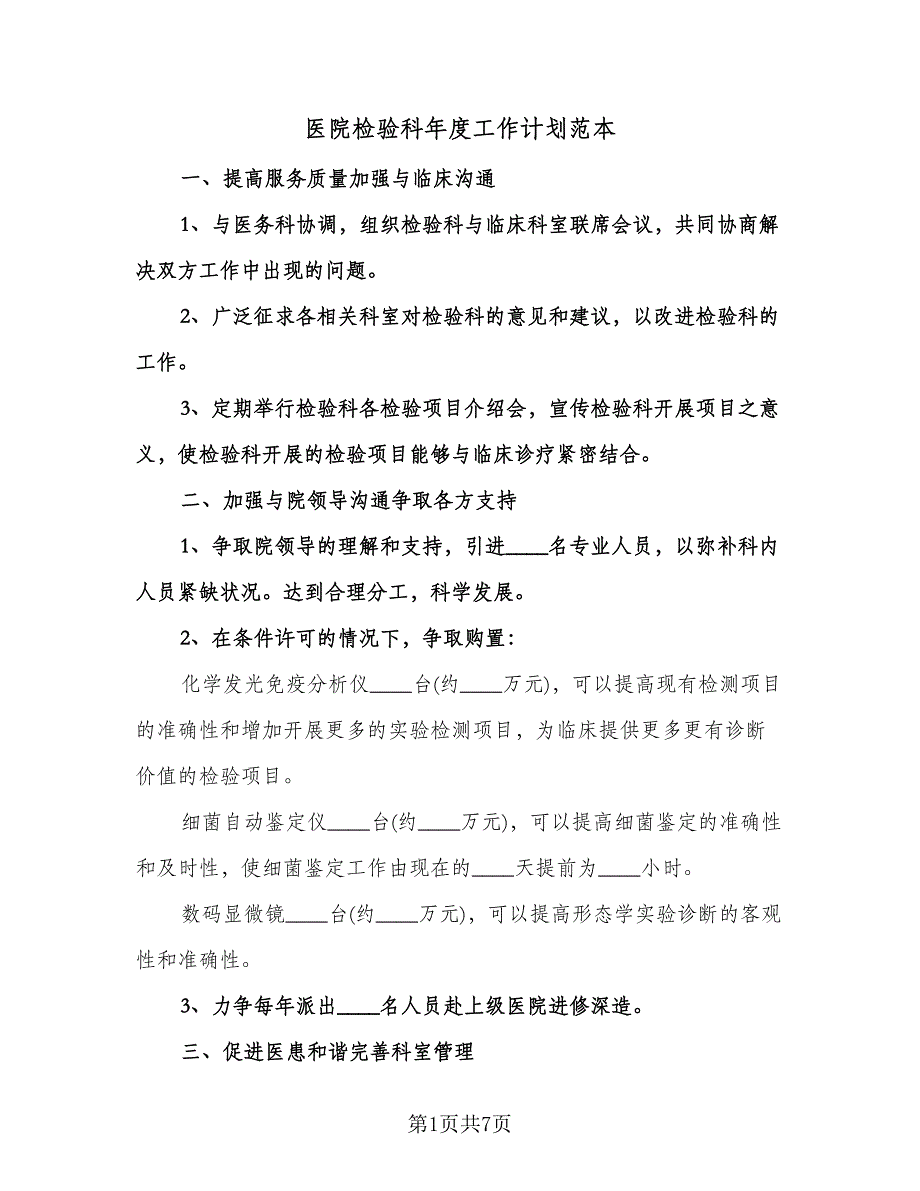 医院检验科年度工作计划范本
一、提高服务质量加强与临床沟通
1、与医务科协调，组织检验科与临床科室联席会议，共同协商解
决双方工作中出现的问题。
2、广泛征求各相关科室对检验科的意见和建议，以改进检验科的
工作。
3、定期举行检验科各检验项目介绍会，宣传检验科开展项目之意
义，使检验科开展的检验项目能够与临床诊疗紧密结合。
二、加强与院领导沟通争取各方支持
1、争取院领导的理解和支持，引进____名专业人员，以弥补科内
人员紧缺状况。达到合理分工，科学发展。
2、在条件许可的情况下，争取购置：
化学发光免疫分析仪____台(约____万元)，可以提高现有检测项目
的准确性和增加开展更多的实验检测项目，为临床提供更多更有诊断
价值的检验项目。
细菌自动鉴定仪____台(约____万元)，可以提高细菌鉴定的准确性
和及时性，使细菌鉴定工作由现在的____天提前为____小时。
数码显微镜____台(约____万元)，可以提高形态学实验诊断的客观
性和准确性。
3、力争每年派出____名人员赴上级医院进修深造。
三、促进医患和谐完善科室管理
第1页共7页